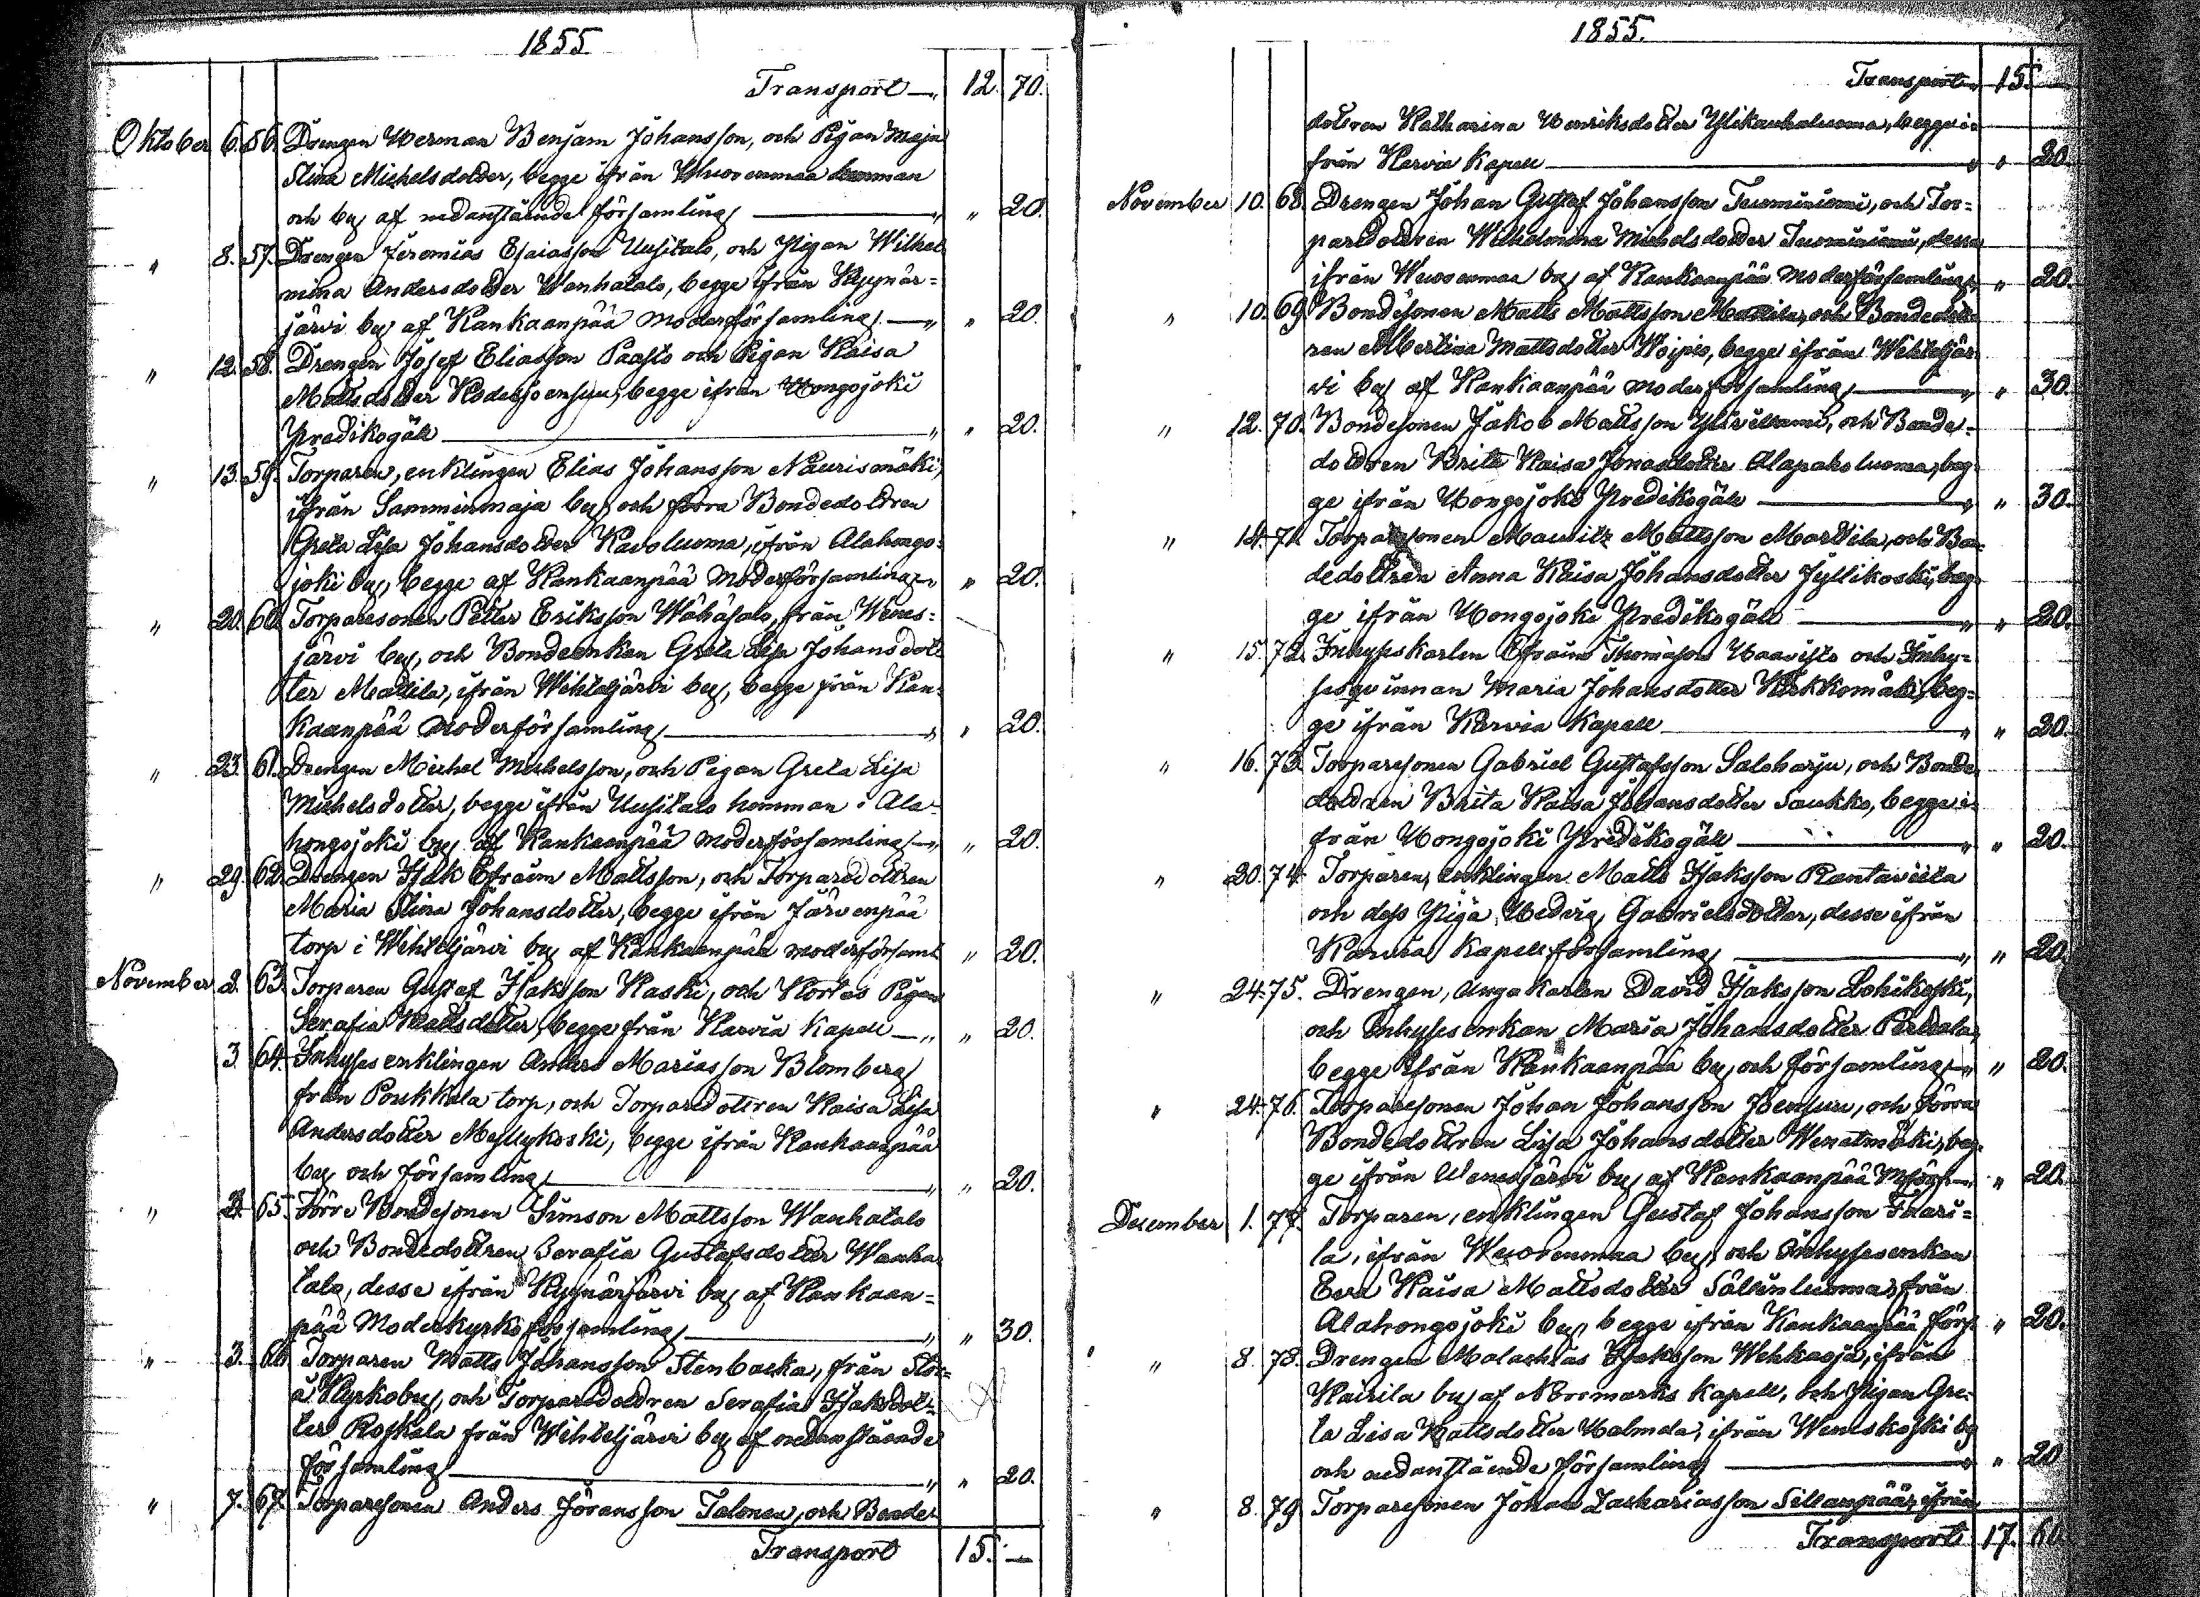 1855
Transport — 12. 70.
Oktober 6. 56. Drengen Herman Benjam Johansson, och Pigan Maja
Stina Michelsdotter, begge ifrån Wuorenmaa hemman
och by af nedanstående församling — " 20.
" 8. 57. Drengen Jeremias Esaiasson Uusitalo, och Pigan Wilhel
mina Andersdotter Wanhatalo, begge ifrån Kyynär=
järvi by af Kankaanpää moderförsamling — " 20.
" 12. 58. Drengen Josef Eliasson Paasto och Pigan Kaisa
Mattsdotter Kodesjoensuu, begge ifrån Hongojoki
Predikogäll — " 20.
" 13. 59. Torparen, enklingen Elias Johansson Naurismäki,
ifrån Samminmaja by, och förra Bondedottren
Greta Lisa Johansdotter Kavoluoma, ifrån Alahongo=
joki by, begge af Kankaanpää Moderförsamling — " 20.
" 20. 60. Torparesonen Petter Eriksson Wähäsalo, från Wenes=
järvi by, och Bondeenkan Greta Lisa Johansdot
ter Mattila, ifrån Wihteljärvi by, begge från Kan=
kaanpää moderförsamling — " 20.
" 23. 61. Drengen Michel Michelsson, och Pigan Greta Lisa
Michelsdotter, begge ifrån Uusitalo hemman i Ala=
hongojoki by af Kankaanpää Moderförsamling — " 20.
" 29. 62. Drengen Isak Efraim Mattsson, och Torparedottren
Maria Stina Johansdotter, begge ifrån Järvenpää
torp i Wihteljärvi by af Kankaanpää moderförsaml " 20.
November 2. 63. Torparen Gustaf Isaksson Kaski, och Pigan
Serafia Mattsdotter, begge från Karvia Kapell — " 20.
3. 64. Inhyses enklingen Anders Mariasson Blomberg
från Poukkala torp, och Torparedottren Kaisa Lisa
Andersdotter Myllykoski, begge ifrån Kankaanpää
by och församling — " 20.
" 2. 65. Förre Bondesonen Simson Mattsson Wanhatalo
och Bondedottren Serafia Gustafsdotter Wanha
talo, desse ifrån Kyynärjärvi by af Kankaan=
pää Moderkyrkoförsamling — " 30.
" 3. 66. Torparen Matts Johansson Stenbacka, från Stor=
å Kyrkoby, och Torparedottren Serafia Isaksdot=
ter Roskala från Wihteljärvi by af nedanstående
församling — " 20.
" 7. 67. Torparesonen Anders Göransson Talonen, och Bonde=
Transport 15. —
1855.
Transport 15. —
dottren Katharina Henriksdotter Ylikauhaluoma, begge i=
från Karvia Kapell — " 20.
November 10. 68. Drengen Johan Gustaf Johansson Tuominiemi, och Tor=
paredottren Wilhelmina Michelsdotter Tuominiemi, desse
ifrån Wuorenmaa by af Kankaanpää Moderförsamling " 20.
" 10. 69. Bondesonen Matts Mattsson Mattila, och Bondedott
ren Albertina Mattsdotter Woipio, begge ifrån Wihteljär
vi by af Kankaanpää moderförsamling — " 30.
" 12. 70. Bondesonen Jakob Mattsson, och Bonde=
dottren Brita Kaisa Jonasdotter Alapakoluoma, beg=
ge ifrån Hongojoki Predikogäll — " 30.
" 14. 71. Torparesonen Mauritz Mattsson Marttila, och Bon=
dedottren Anna Kaisa Johansdotter Jyllikoski, beg=
ge ifrån Hongojoki Predikogäll — " 20.
" 15. 72. Inhyseskarlen Efraim Thomasson Haavisto och Inhy=
sesqvinnan Maria Johansdotter Kirkkomäki, beg=
ge ifrån Karvia Kapell — " 20.
" 16. 73. Torparesonen Gabriel Gustafsson Saloharju, och Bonde
dottren Brita Kaisa Johansdotter Saukko, begge i=
från Hongojoki Predikogäll — " 20.
" 20. 74. Torparen, enklingen Matts Isaksson Rantaviita
och dess Piga Hedvig Gabrielsdotter, desse ifrån
Karvia Kapellförsamling — " 20.
" 24. 75. Drengen, unga karlen David Isaksson Lohikoski,
och Inhysesenkan Maria Johansdotter Perttala
begge ifrån Kankaanpää by och församling — " 20.
" 24. 76. Torparesonen Johan Johansson Joensuu, och förra
Bondedottren Lisa Johansdotter Wenetmäki, beg=
ge ifrån Wenesjärvi by af Kankaanpää Mförs. — " 20.
December 1. 77. Torparen, enklingen Gustaf Johansson Faari=
la, ifrån Wuorenmaa by, och Inhysesenkan
Eva Kaisa Mattsdotter Sältinluoma, från
Alahongojoki by, begge ifrån Kankaanpää förs. " 20.
" 8. 78. Drengen Malachias Isaksson Wehkaoja, ifrån
Kairila by af Norrmarks Kapell, och Pigan Gre=
ta Lisa Mattsdotter Holmda, ifrån Weneskoski by
och nedanstående församling — " 20
" 8. 79. Torparesonen Johan Zachariasson Sillanpää, ifrån
Transport 17. 60.